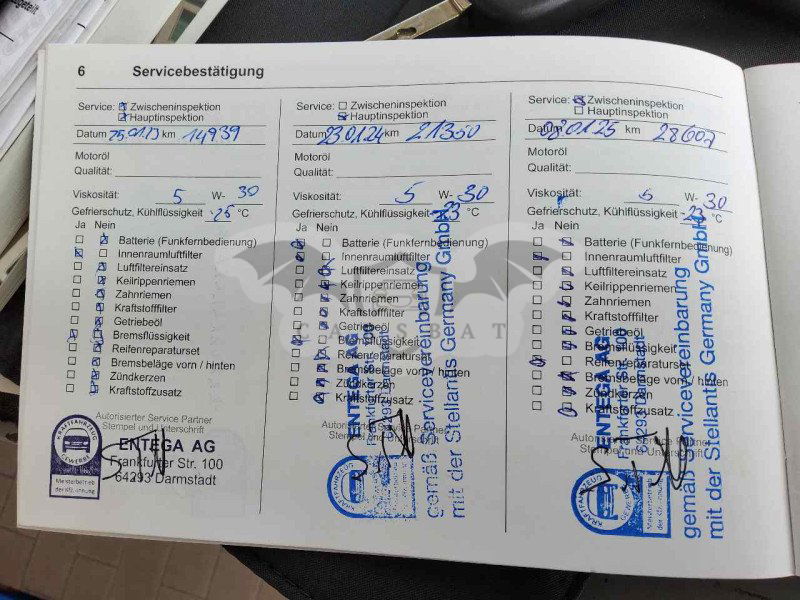 6 Servicebestätigung
Service: Zwischeninspektion
Hauptinspektion
Datum 25.01.23 km 14939
Motoröl
Qualität:
Viskosität: 5 W- 30
Gefrierschutz, Kühlflüssigkeit -25 °C
Ja Nein
Batterie (Funkfernbedienung)
Innenraumluftfilter
Luftfiltereinsatz
Keilrippenriemen
Zahnriemen
Kraftstofffilter
Getriebeöl
Bremsflüssigkeit
Reifenreparaturset
Bremsbeläge vorn / hinten
Zündkerzen
Kraftstoffzusatz
Autorisierter Service Partner
Stempel und Unterschrift
KRAFTFAHRZEUG
GEWERBE
Meisterbetrieb
der Kfz-Innung
ENTEGA AG
Frankfurter Str. 100
64293 Darmstadt
Service: Zwischeninspektion
Hauptinspektion
Datum 23.01.24 km 21350
Motoröl
Qualität:
Viskosität: 5 W- 30
Gefrierschutz, Kühlflüssigkeit -23 °C
Ja Nein
Batterie (Funkfernbedienung)
Innenraumluftfilter
Luftfiltereinsatz
Keilrippenriemen
Zahnriemen
Kraftstofffilter
Getriebeöl
Bremsflüssigkeit
Reifenreparaturset
Bremsbeläge vorn / hinten
Zündkerzen
Kraftstoffzusatz
Autorisierter Service Partner
Stempel und Unterschrift
KRAFTFAHRZEUG
ENTEGA AG
Frankfurter Str. 100
64293 Darmstadt
gemäß Servicevereinbarung
mit der Stellantis Germany GmbH
Service: Zwischeninspektion
Hauptinspektion
Datum 08.01.25 km 28607
Motoröl
Qualität:
Viskosität: 5 W- 30
Gefrierschutz, Kühlflüssigkeit -23 °C
Ja Nein
Batterie (Funkfernbedienung)
Innenraumluftfilter
Luftfiltereinsatz
Keilrippenriemen
Zahnriemen
Kraftstofffilter
Getriebeöl
Bremsflüssigkeit
Reifenreparaturset
Bremsbeläge vorn / hinten
Zündkerzen
Kraftstoffzusatz
Autorisierter Service Partner
Stempel und Unterschrift
KRAFTFAHRZEUG
GEWERBE
Meisterbetrieb
der Kfz-Innung
ENTEGA AG
Frankfurter Str. 100
64293 Darmstadt
gemäß Servicevereinbarung
mit der Stellantis Germany GmbH
CARSBAT